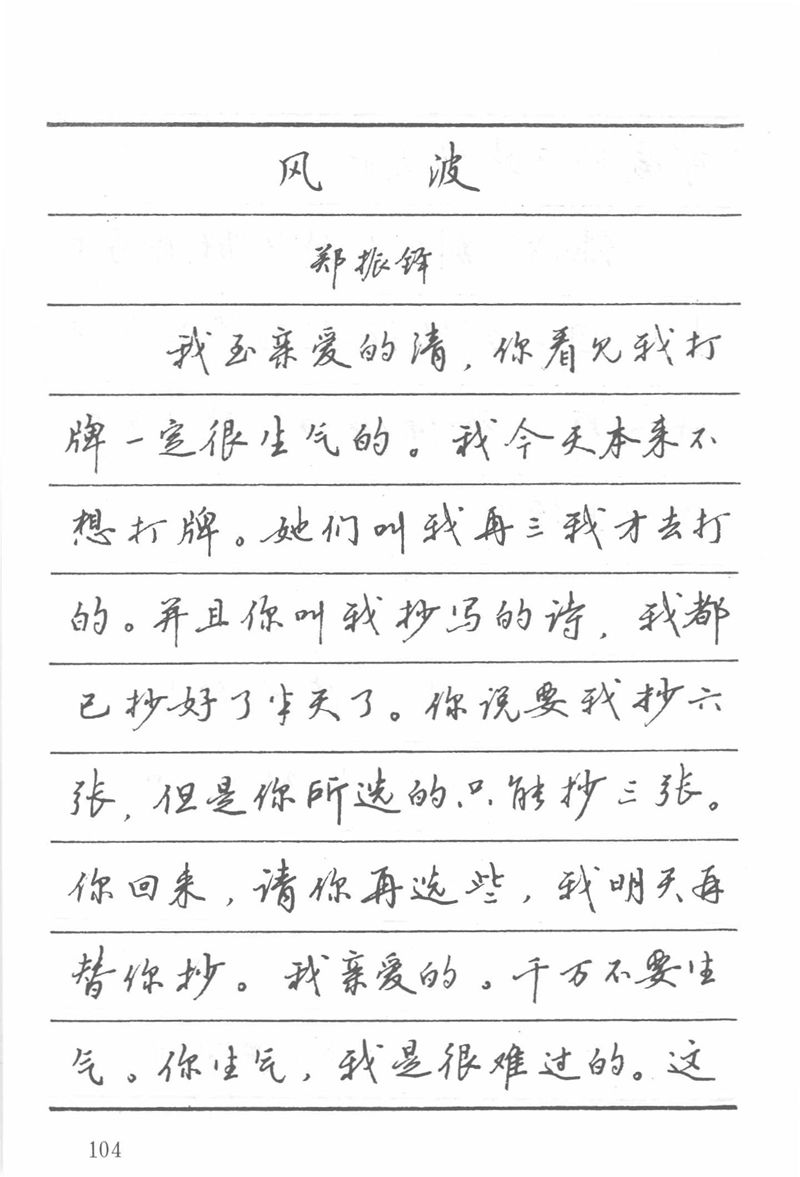 风 波
郑振铎
我至亲爱的清，你看见我打
牌一定很生气的。我今天本来不
想打牌。她们叫我再三我才去打
的。并且你叫我抄写的诗，我都
已抄好了半天了。你说要我抄六
张，但是你所选的只能抄三张。
你回来，请你再选些，我明天再
替你抄。我亲爱的。千万不要生
气。你生气，我是很难过的。这
104